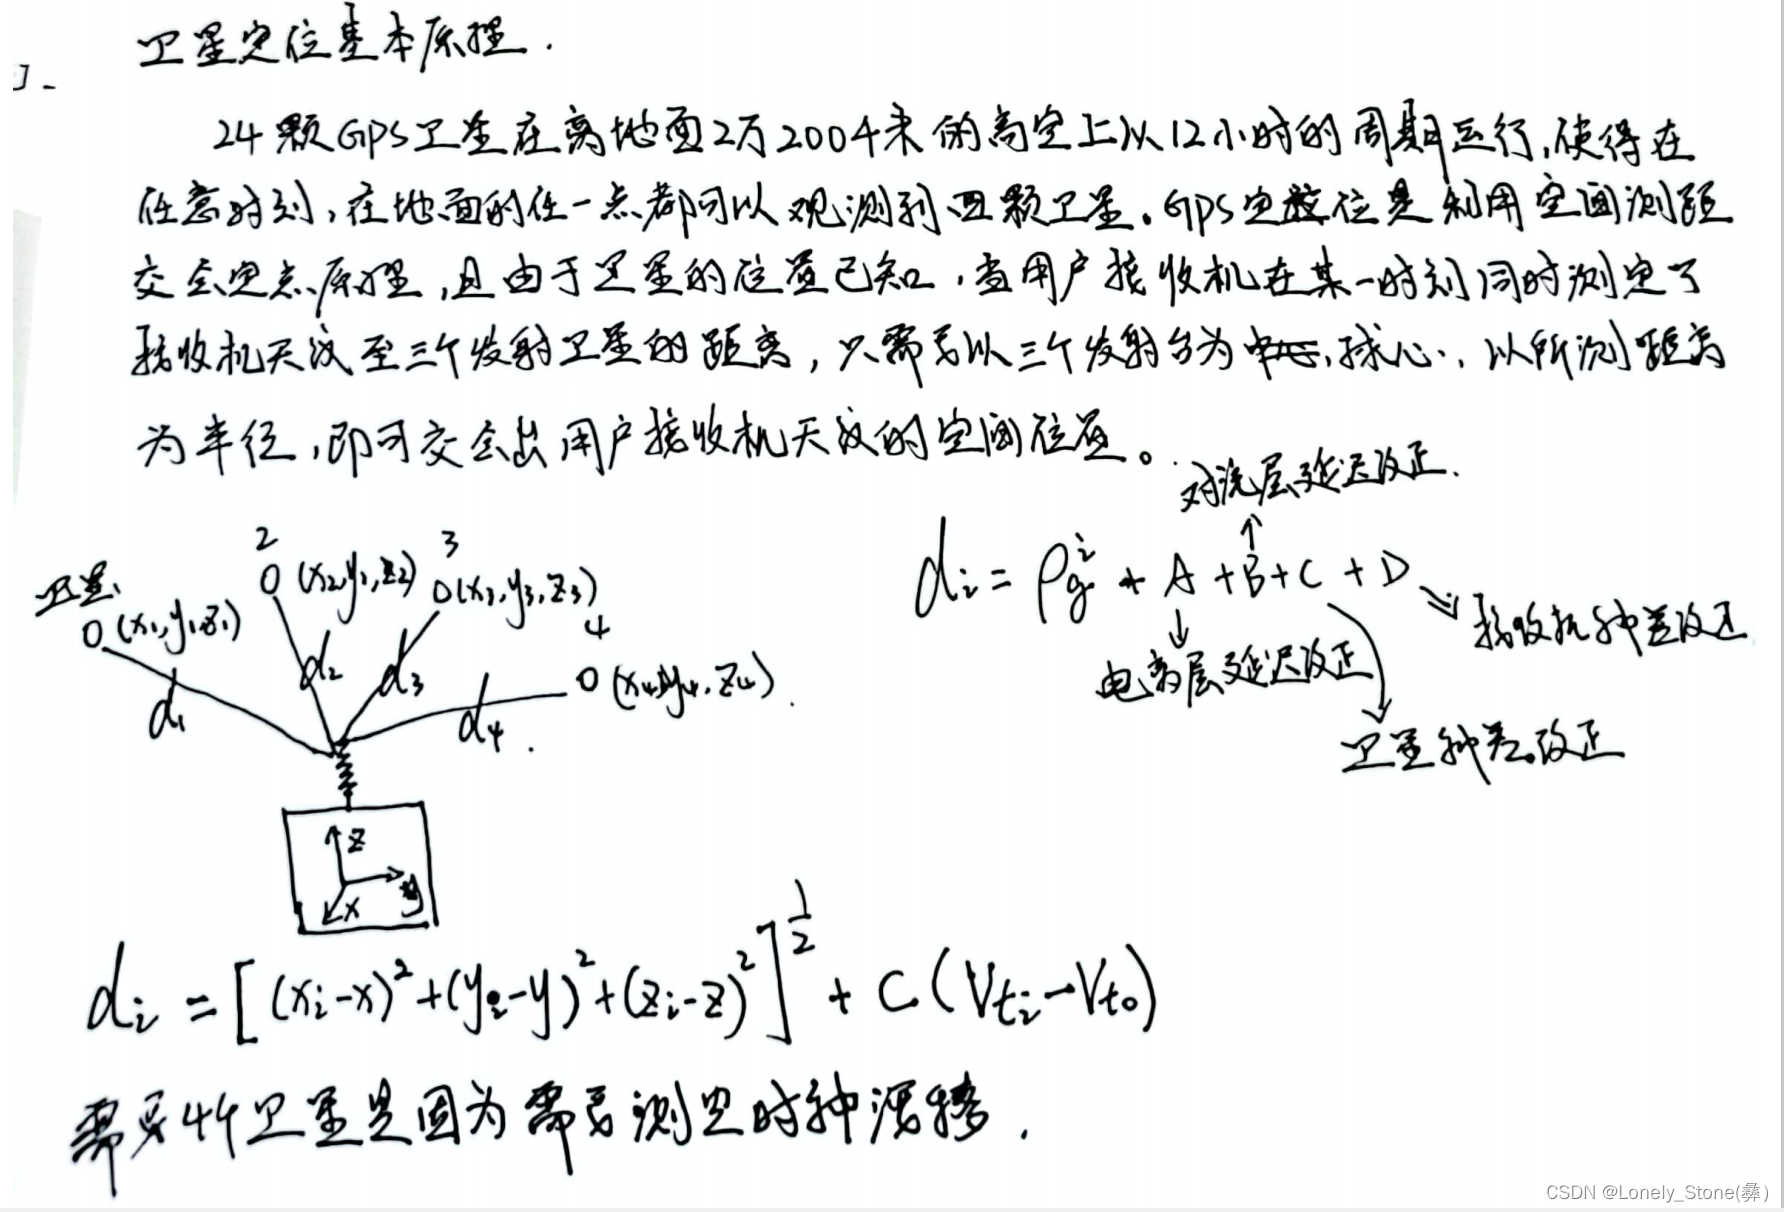 卫星定位基本原理.
24颗GPS卫星在离地面2万200千米的高空上以12小时的周期运行,使得在
任意时刻,在地面的任一点都可以观测到四颗卫星。GPS定位是利用空间测距
交会定点原理,且由于卫星的位置已知,当用户接收机在某一时刻同时测定了
接收机天线至三个发射卫星的距离,只需要以三个发射台为球心,以所测距离
为半径,即可交会出用户接收机天线的空间位置。
对流层延迟改正.
di = ρgⁱ + A + B + C + D
接收机钟差改正
电离层延迟改正
卫星钟差改正
卫星
(x1,y1,z1)
2
(x2,y2,z2)
3
(x3,y3,z3)
4
(x4,y4,z4).
d1
d2
d3
d4.
z
x
y
di = [(xi-x)²+(yi-y)²+(zi-z)²]^½ + C(Vti-Vto)
需要4个卫星是因为需要测出时钟漂移.
CSDN @Lonely_Stone(彝)